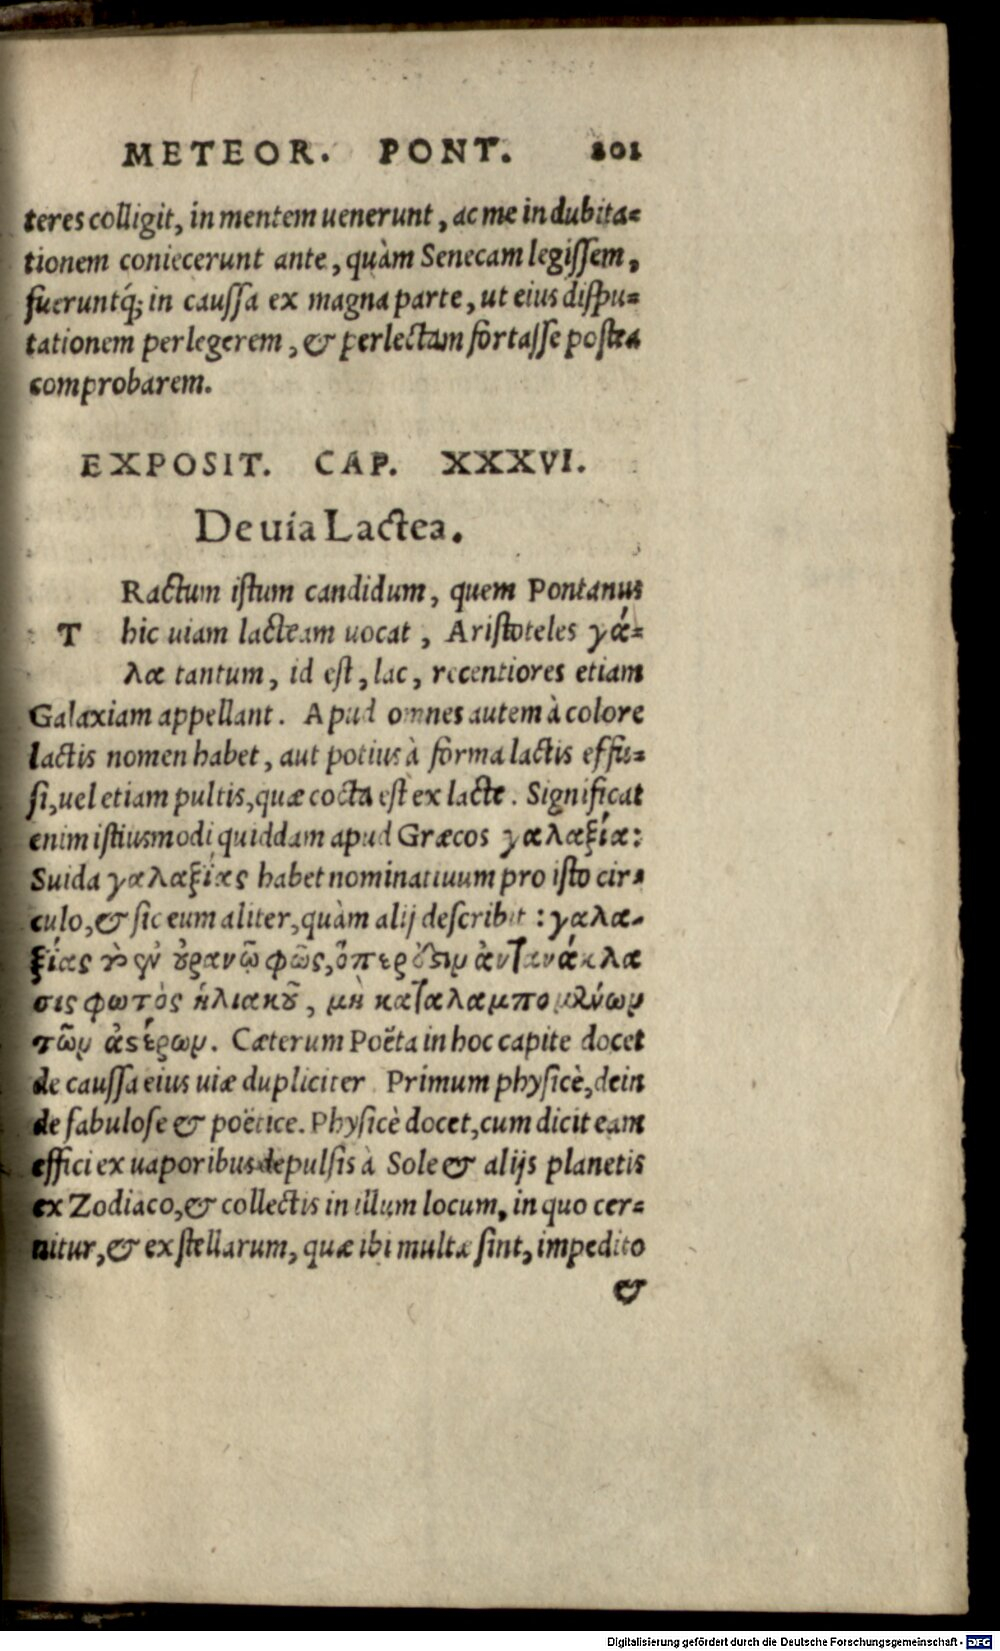 METEOR. PONT. 201
teres colligit, in mentem uenerunt, ac me in dubita=
tionem coniecerunt ante, quàm Senecam legissem,
fueruntq́; in caussa ex magna parte, ut eius dispu=
tationem perlegerem, & perlectam fortasse postea
comprobarem.
EXPOSIT. CAP. XXXVI.
De uia Lactea.
TRactum istum candidum, quem Pontanus
hic uiam lacteam uocat, Aristoteles γά=
λα tantum, id est, lac, recentiores etiam
Galaxiam appellant. Apud omnes autem à colore
lactis nomen habet, aut potius à forma lactis effu=
si, uel etiam pultis, quæ cocta est ex lacte. Significat
enim istiusmodi quiddam apud Græcos γαλαξία:
Suida γαλαξίας habet nominatiuum pro isto cir=
culo, & sic eum aliter, quàm alij describit: γαλα-
ξίας τὸ ἐν οὐρανῷ φῶς, ὅπερ ὅζιν ἀντανάκλα
σις φωτὸς ἡλιακοῦ, μὴ καταλαμπομένων
τῶν ἀστέρων. Cæterum Poëta in hoc capite docet
de caussa eius uiæ dupliciter Primum physicè, dein
de fabulose & poëtice. Physicè docet, cum dicit eam
effici ex uaporibus depulsis à Sole & alijs planetis
ex Zodiaco, & collectis in illum locum, in quo cer=
nitur, & ex stellarum, quæ ibi multæ sint, impedito
&
Digitalisierung gefördert durch die Deutsche Forschungsgemeinschaft - DFG